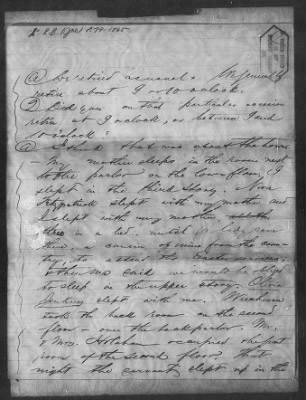 & R.B. P. 79 - 1865
A He retired as usual. We generally
retire about 9 or 10 o'clock.
Q Did you on that particular occasion
retire at 9 o'clock, or between 9 and
10 o'clock?
A I think that was about the hour
- My mother sleeps in the room next
to the parlor on the lower floor; I
slept in the third story. Nora
Fitzpatrick slept with my mother and
slept with my mother,
in a bed, until
a cousin of mine from the coun-
try, to attend the Easter services,
so Ma said we would be obliged
to sleep in the upper story. Olivia
Jenkins slept with me. Weichman
took the back room on the second
floor - one the back parlor. Mr.
& Mrs. Holohan occupied the front
room of the second floor. That
night the servant slept up in the